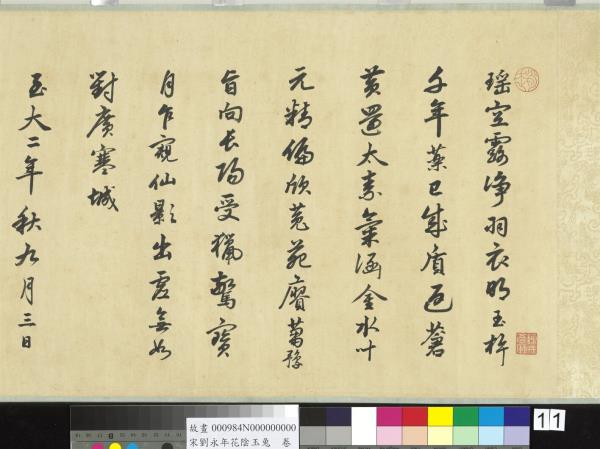 瑶空露淨羽衣明玉杵
千年藥已成質匹蒼
黃還太素氣涵金水叶
元精偏欣菟苑賡萬豫
肯向長楊受獵驚寶
月乍窺仙影出虛無如
對廣寒城
至大二年秋九月三日
故畫 000984N000000000
宋劉永年花陰玉兔 卷
11